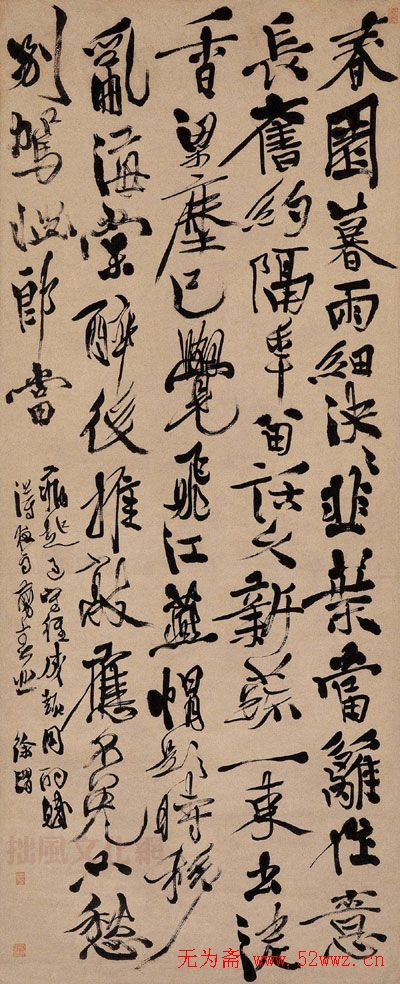 春園暮雨細泱泱韭葉當籬作意
長舊約隔年留話久新蔬一束出泥
香梁塵已覺飛江燕帽影時移
亂海棠醉後推敲應不免只愁
別駕惱郎當
得夜雨剪春韭
徐渭
拙風文化網
无为斋 www.52wwz.cn